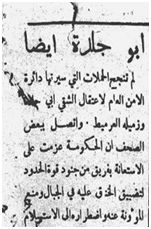 ابو جلدة ايضا
لم تنجح الحملات التي سيرتها دائرة
الامن العام لاعتقال الشقي ابي
وزميله العرميط . واتصل ببعض
الصحف ان الحكومة عزمت على
الاستعانة بفريق من جنود قوة الحدود
لتضييق الخناق عليه في الجبال ومنع
المؤونة عنه واضطراره الى الاستسلام